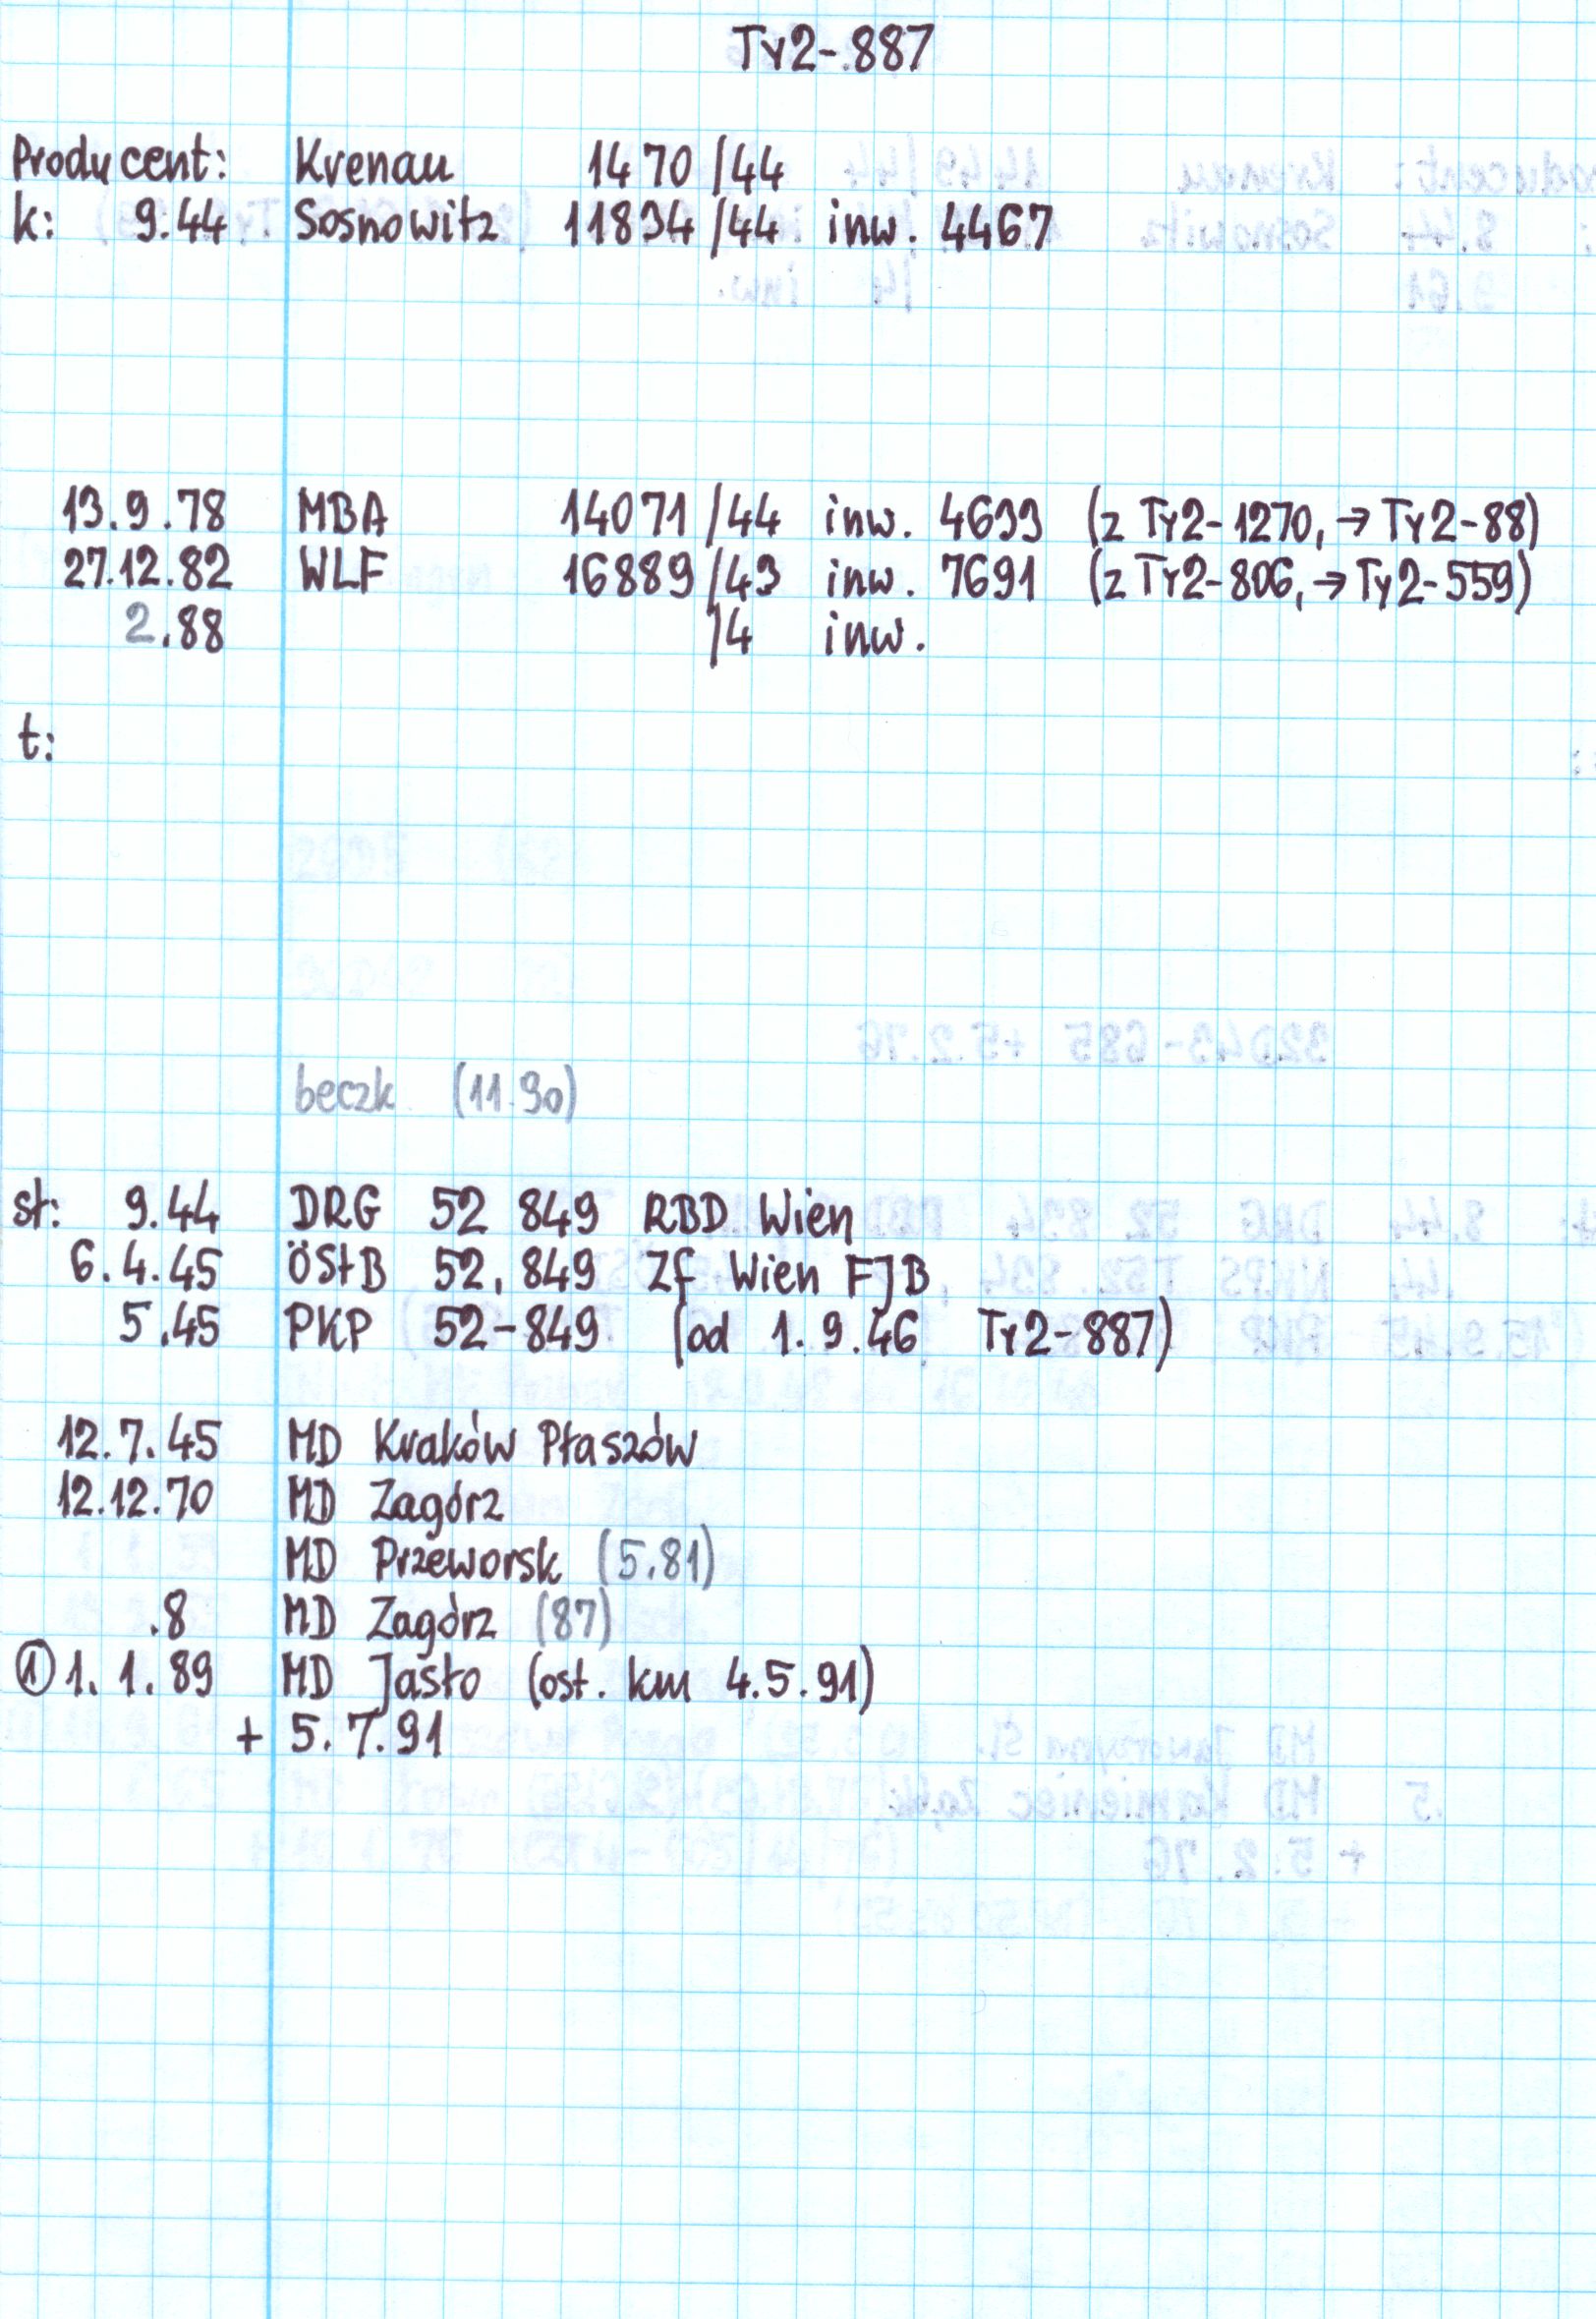 Ty2-887
Producent: Krenau 1470/44
k: 9.44 Sosnowitz 11834/44 inw. 4467
13.9.78 MBA 14071/44 inw. 4699 (z Ty2-1270, → Ty2-88)
27.12.82 WLF 16889/43 inw. 7691 (z Ty2-806, → Ty2-559)
2.88 /4 inw.
t:
beczk (11.90)
st: 9.44 DRG 52 849 RBD Wien
6.4.45 ÖStB 52.849 Zf Wien FJB
5.45 PKP 52-849 (od 1.9.46 Ty2-887)
12.7.45 MD Kraków Płaszów
12.12.70 MD Zagórz
MD Przeworsk (5.81)
.8 MD Zagórz (87)
① 1.1.89 MD Jasło (ost. km 4.5.91)
+ 5.7.91